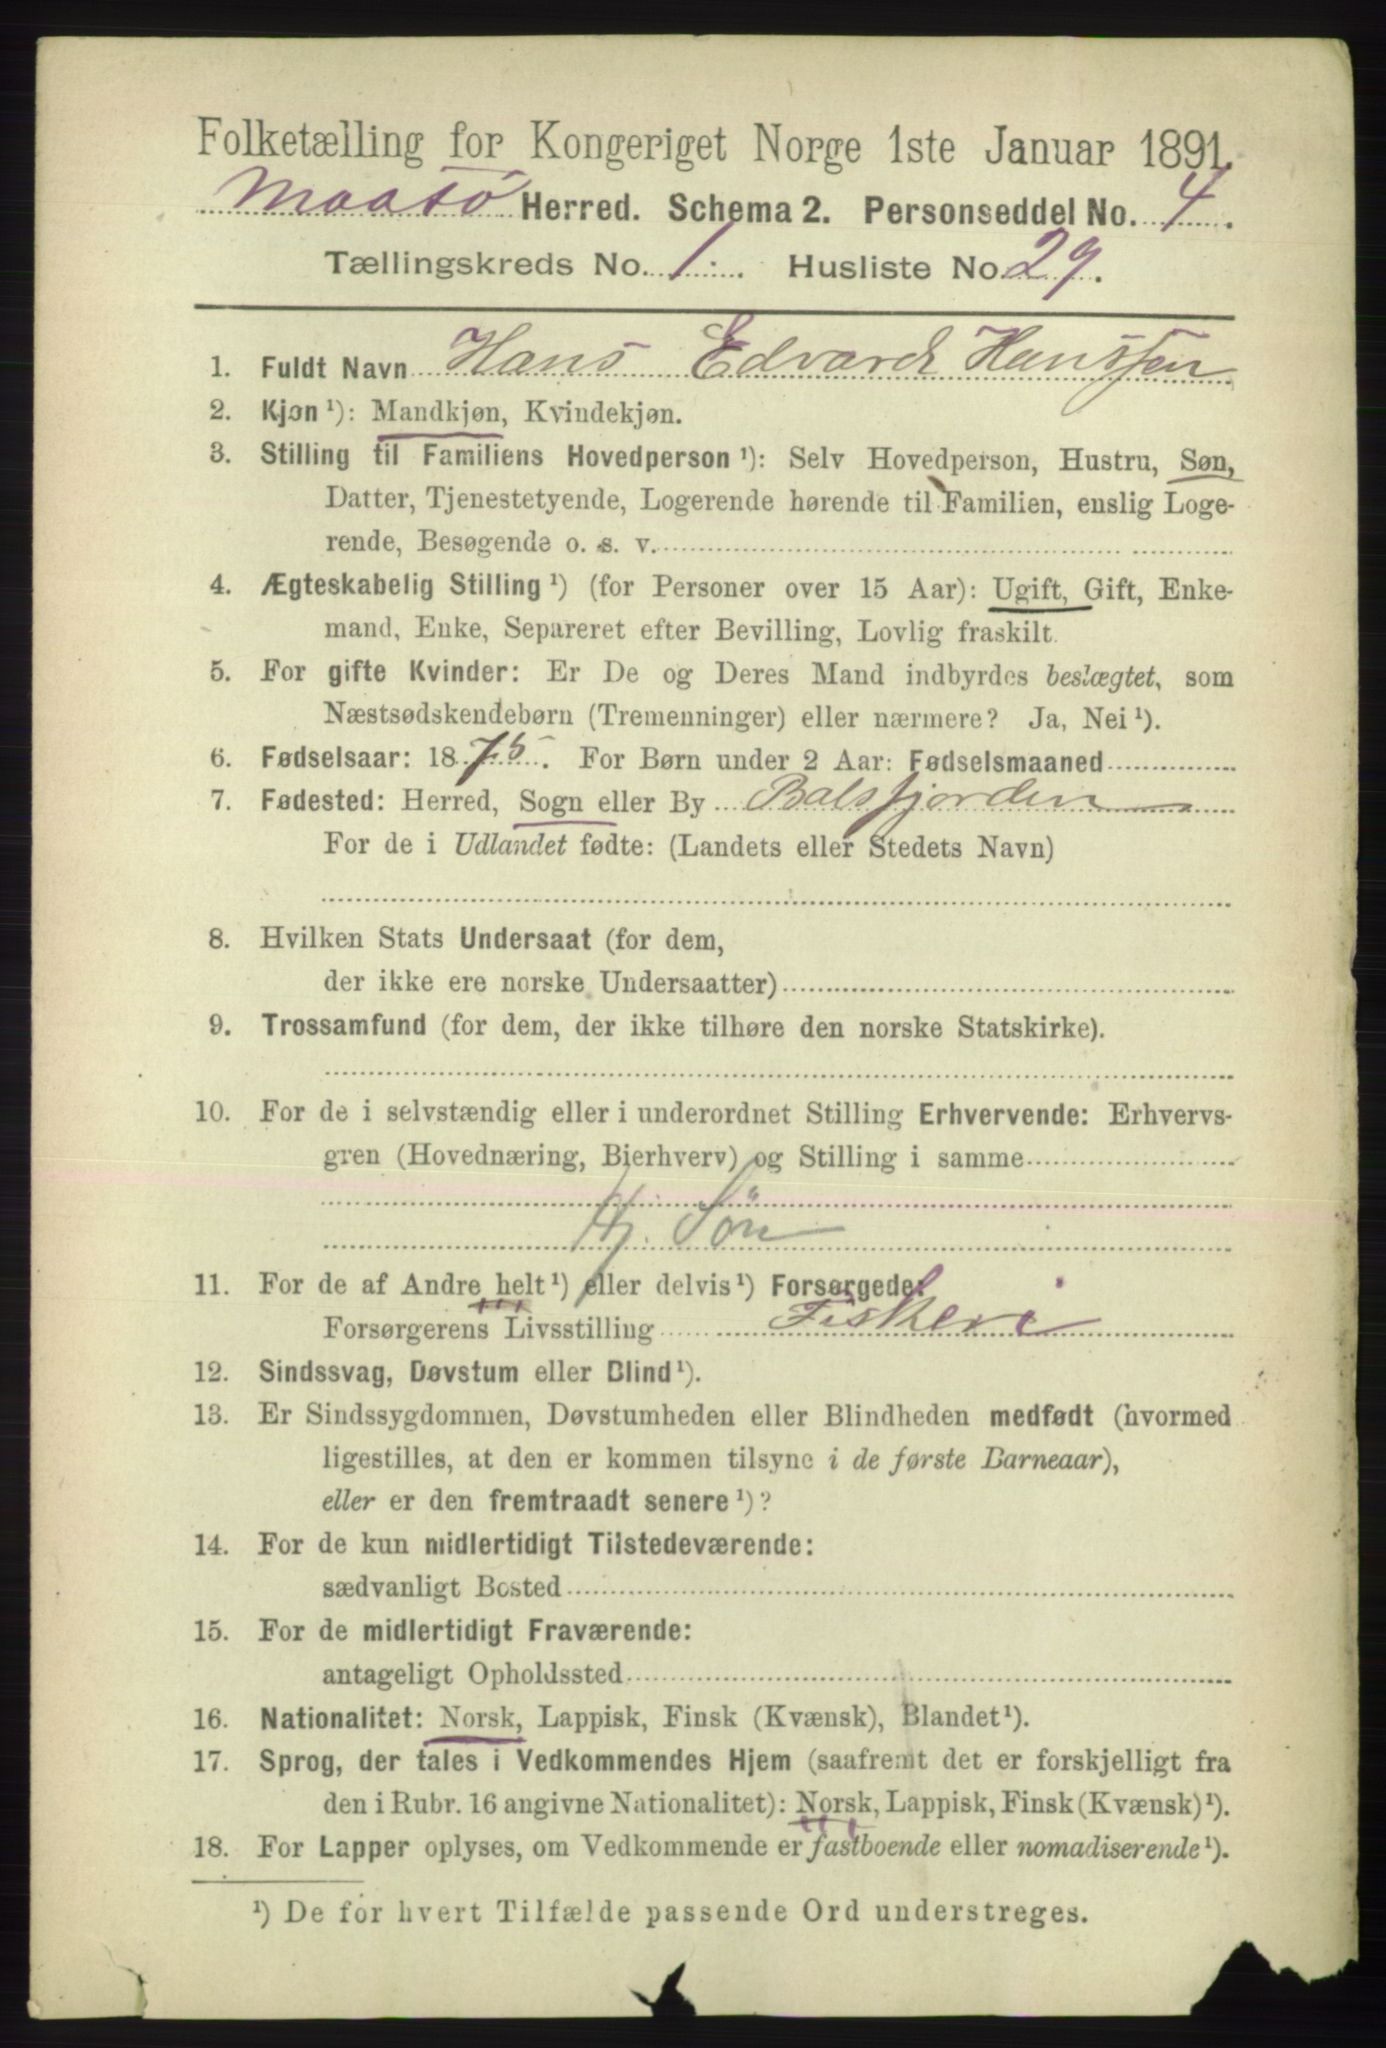 Folketælling for Kongeriget Norge 1ste Januar 1891.
Maasø Herred. Schema 2. Personseddel No. 4.
Tællingskreds No. 1. Husliste No 29.
1. Fuldt Navn Hans Edvard Hanssen
2. Kjøn ¹): Mandkjøn, Kvindekjøn.
3. Stilling til Familiens Hovedperson ¹): Selv Hovedperson, Hustru, Søn,
Datter, Tjenestetyende, Logerende hørende til Familien, enslig Loge-
rende, Besøgende o. s. v.
4. Ægteskabelig Stilling ¹) (for Personer over 15 Aar): Ugift, Gift, Enke-
mand, Enke, Separeret efter Bevilling, Lovlig fraskilt.
5. For gifte Kvinder: Er De og Deres Mand indbyrdes beslægtet, som
Næstsødskendebørn (Tremenninger) eller nærmere? Ja, Nei ¹).
6. Fødselsaar: 1875. For Børn under 2 Aar: Fødselsmaaned
7. Fødested: Herred, Sogn eller By Balsfjorden
For de i Udlandet fødte: (Landets eller Stedets Navn)
8. Hvilken Stats Undersaat (for dem,
der ikke ere norske Undersaatter)
9. Trossamfund (for dem, der ikke tilhøre den norske Statskirke).
10. For de i selvstændig eller i underordnet Stilling Erhvervende: Erhvervs-
gren (Hovednæring, Bierhverv) og Stilling i samme
Hf. Søn
11. For de af Andre helt ¹) eller delvis ¹) Forsørgede:
Forsørgerens Livsstilling Fiskeri
12. Sindssvag, Døvstum eller Blind ¹).
13. Er Sindssygdommen, Døvstumheden eller Blindheden medfødt (hvormed
ligestilles, at den er kommen tilsyne i de første Barneaar),
eller er den fremtraadt senere ¹)?
14. For de kun midlertidigt Tilstedeværende:
sædvanligt Bosted
15. For de midlertidigt Fraværende:
antageligt Opholdssted
16. Nationalitet: Norsk, Lappisk, Finsk (Kvænsk), Blandet ¹).
17. Sprog, der tales i Vedkommendes Hjem (saafremt det er forskjelligt fra
den i Rubr. 16 angivne Nationalitet): Norsk, Lappisk, Finsk (Kvænsk) ¹).
18. For Lapper oplyses, om Vedkommende er fastboende eller nomadiserende ¹).
¹) De for hvert Tilfælde passende Ord understreges.